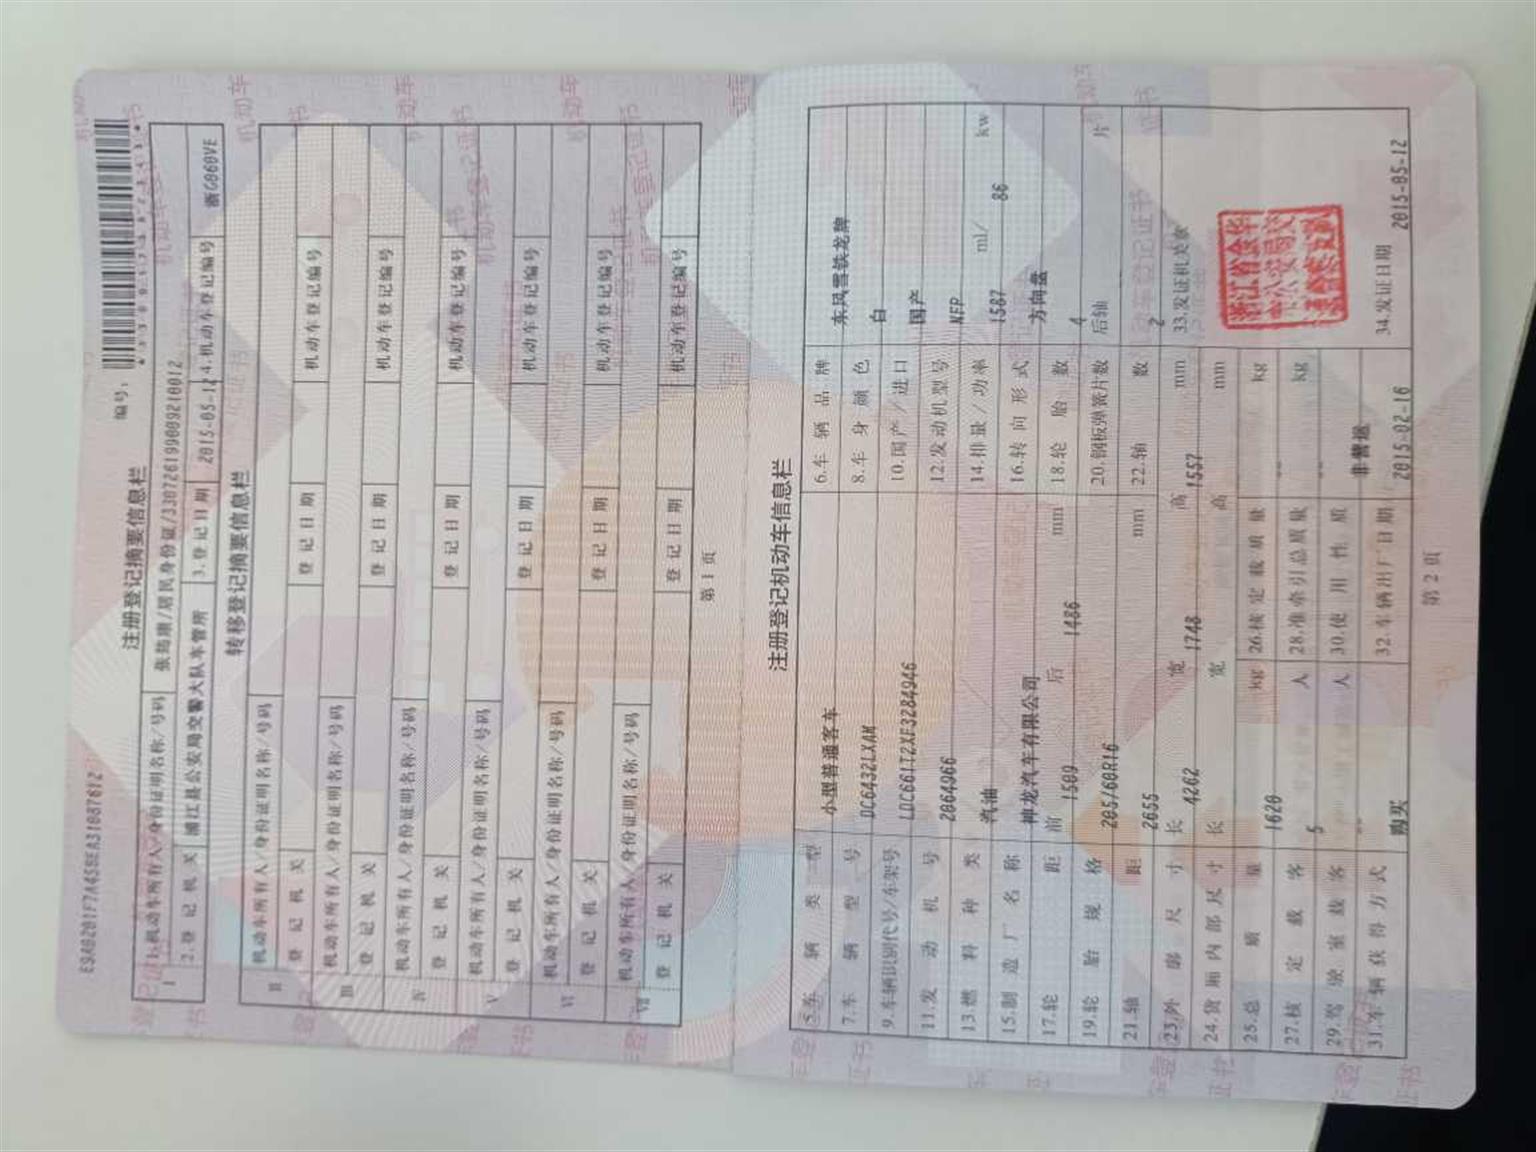 E9A0201F7A458EA31087612
编号：
注册登记摘要信息栏
I 1.机动车所有人/身份证明名称/号码 张炜康/居民身份证/330726199009210012
2.登记机关 浦江县公安局交警大队车管所 3.登记日期 2015-05-12 4.机动车登记编号 浙G060VE
转移登记摘要信息栏
II 机动车所有人/身份证明名称/号码
登记机关 登记日期 机动车登记编号
III 机动车所有人/身份证明名称/号码
登记机关 登记日期 机动车登记编号
IV 机动车所有人/身份证明名称/号码
登记机关 登记日期 机动车登记编号
V 机动车所有人/身份证明名称/号码
登记机关 登记日期 机动车登记编号
VI 机动车所有人/身份证明名称/号码
登记机关 登记日期 机动车登记编号
VII 机动车所有人/身份证明名称/号码
登记机关 登记日期 机动车登记编号
第1页
注册登记机动车信息栏
5.车辆类型 小型普通客车 6.车辆品牌 东风雪铁龙牌
7.车辆型号 DC6432LXAM 8.车身颜色 白
9.车辆识别代号/车架号 LDC661T2XF3284946 10.国产/进口 国产
11.发动机号 2064966 12.发动机型号 NFP
13.燃料种类 汽油 14.排量/功率 1587 ml/ 86 kw
15.制造厂名称 神龙汽车有限公司 16.转向形式 方向盘
17.轮距 前 1500 后 1486 mm 18.轮胎数 4
19.轮胎规格 205/60R16 20.钢板弹簧片数 后轴 片
21.轴距 2655 mm 22.轴数 2
23.外廓尺寸 长 4262 宽 1748 高 1557 mm 33.发证机关章
24.货厢内部尺寸 长 宽 高 mm
25.总质量 1620 kg 26.核定载质量 -- kg
27.核定载客 5 人 28.准牵引总质量 -- kg
29.驾驶室载客 -- 人 30.使用性质 非营运
31.车辆获得方式 购买 32.车辆出厂日期 2015-02-16 34.发证日期 2015-05-12
浙江省金华
市公安局交
通警察支队
第2页